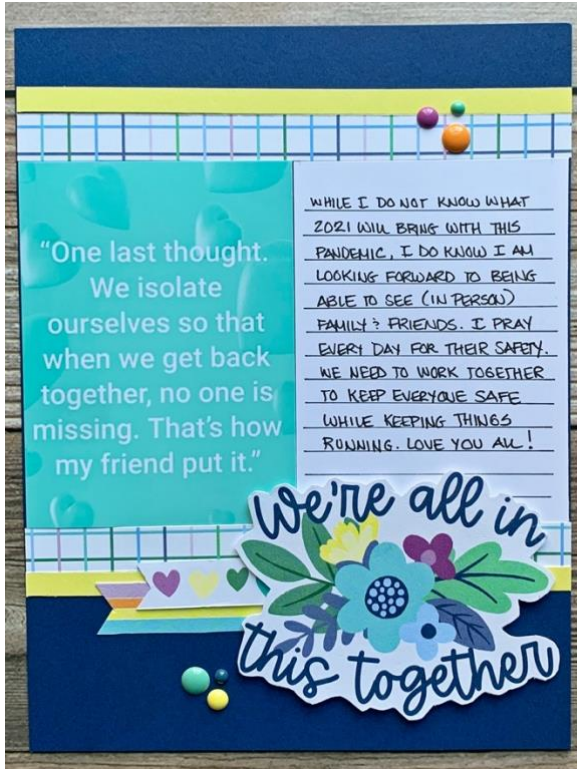 “One last thought.
We isolate
ourselves so that
when we get back
together, no one is
missing. That’s how
my friend put it.”
WHILE I DO NOT KNOW WHAT
2021 WILL BRING WITH THIS
PANDEMIC, I DO KNOW I AM
LOOKING FORWARD TO BEING
ABLE TO SEE (IN PERSON)
FAMILY & FRIENDS. I PRAY
EVERY DAY FOR THEIR SAFETY.
WE NEED TO WORK TOGETHER
TO KEEP EVERYONE SAFE
WHILE KEEPING THINGS
RUNNING. LOVE YOU ALL!
We're all in
this together